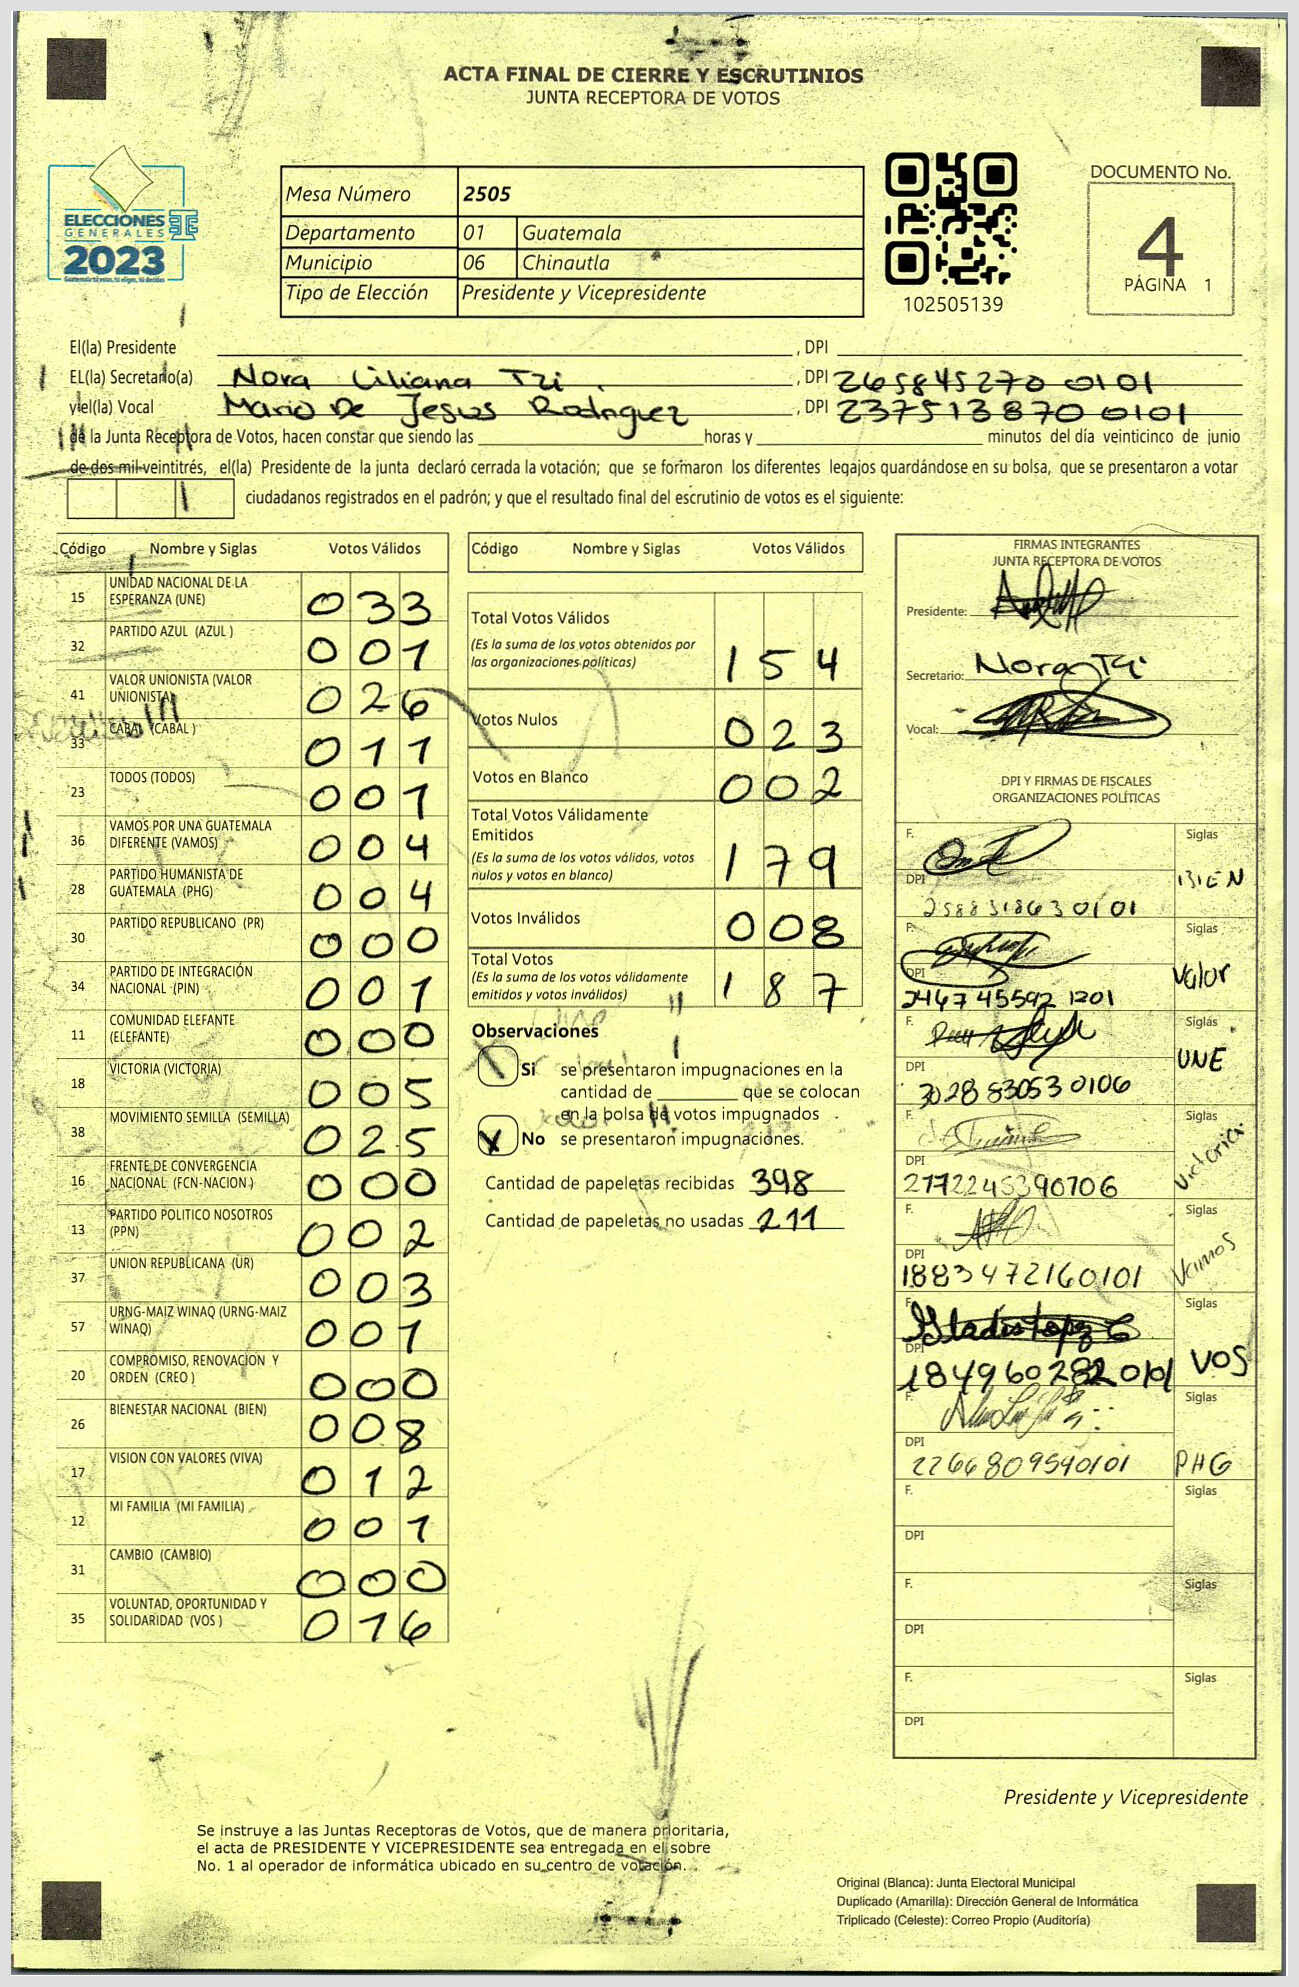 ACTA FINAL DE CIERRE Y ESCRUTINIOS
JUNTA RECEPTORA DE VOTOS
ELECCIONES
GENERALES
2023
Mesa Número 2505
Departamento 01 Guatemala
Municipio 06 Chinautla
Tipo de Elección Presidente y Vicepresidente
102505139
DOCUMENTO No.
4
PÁGINA 1
El(la) Presidente , DPI
EL(la) Secretario(a) Nora Liliana Tzi . , DPI 265845270 0101
y/el(la) Vocal Mario De Jesus Rodriguez , DPI 237513870 0101
de la Junta Receptora de Votos, hacen constar que siendo las horas y minutos del día veinticinco de junio
de dos mil veintitrés, el(la) Presidente de la junta declaró cerrada la votación; que se formaron los diferentes legajos quardándose en su bolsa, que se presentaron a votar
ciudadanos registrados en el padrón; y que el resultado final del escrutinio de votos es el siguiente:
Código Nombre y Siglas Votos Válidos
15 UNIDAD NACIONAL DE LA ESPERANZA (UNE) 033
32 PARTIDO AZUL (AZUL ) 001
41 VALOR UNIONISTA (VALOR UNIONISTA) 026
33 CABAL (CABAL ) 011
23 TODOS (TODOS) 001
36 VAMOS POR UNA GUATEMALA DIFERENTE (VAMOS) 004
28 PARTIDO HUMANISTA DE GUATEMALA (PHG) 004
30 PARTIDO REPUBLICANO (PR) 000
34 PARTIDO DE INTEGRACIÓN NACIONAL (PIN) 001
11 COMUNIDAD ELEFANTE (ELEFANTE) 000
18 VICTORIA (VICTORIA) 005
38 MOVIMIENTO SEMILLA (SEMILLA) 025
16 FRENTE DE CONVERGENCIA NACIONAL (FCN-NACION ) 000
13 PARTIDO POLITICO NOSOTROS (PPN) 002
37 UNION REPUBLICANA (UR) 003
57 URNG-MAIZ WINAQ (URNG-MAIZ WINAQ) 001
20 COMPROMISO, RENOVACION Y ORDEN (CREO ) 000
26 BIENESTAR NACIONAL (BIEN) 008
17 VISION CON VALORES (VIVA) 012
12 MI FAMILIA (MI FAMILIA) 001
31 CAMBIO (CAMBIO) 000
35 VOLUNTAD, OPORTUNIDAD Y SOLIDARIDAD (VOS ) 016
Código Nombre y Siglas Votos Válidos
Total Votos Válidos
(Es la suma de los votos obtenidos por las organizaciones políticas) 154
Votos Nulos 023
Votos en Blanco 002
Total Votos Válidamente Emitidos
(Es la suma de los votos válidos, votos nulos y votos en blanco) 179
Votos Inválidos 008
Total Votos
(Es la suma de los votos válidamente emitidos y votos inválidos) 187
Observaciones
Si se presentaron impugnaciones en la
cantidad de que se colocan
en la bolsa de votos impugnados
X No se presentaron impugnaciones.
Cantidad de papeletas recibidas 398
Cantidad de papeletas no usadas 211
FIRMAS INTEGRANTES
JUNTA RECEPTORA DE VOTOS
Presidente:
Secretario: Nora Tzi
Vocal:
DPI Y FIRMAS DE FISCALES
ORGANIZACIONES POLÍTICAS
F. Siglas
DPI BIEN
2588318630101
F. Siglas
DPI Valor
2467 45592 1201
F. Siglas
DPI UNE
3028830530106
F. Siglas
DPI Victoria
2772245390706
F. Siglas
DPI Vamos
1883472160101
F. Siglas
DPI VOS
1849602820101
F. Siglas
DPI PHG
2266809590101
F. Siglas
DPI
F. Siglas
DPI
F. Siglas
DPI
Presidente y Vicepresidente
Se instruye a las Juntas Receptoras de Votos, que de manera prioritaria,
el acta de PRESIDENTE Y VICEPRESIDENTE sea entregada en el sobre
No. 1 al operador de informática ubicado en su centro de votación.
Original (Blanca): Junta Electoral Municipal
Duplicado (Amarilla): Dirección General de Informática
Triplicado (Celeste): Correo Propio (Auditoría)